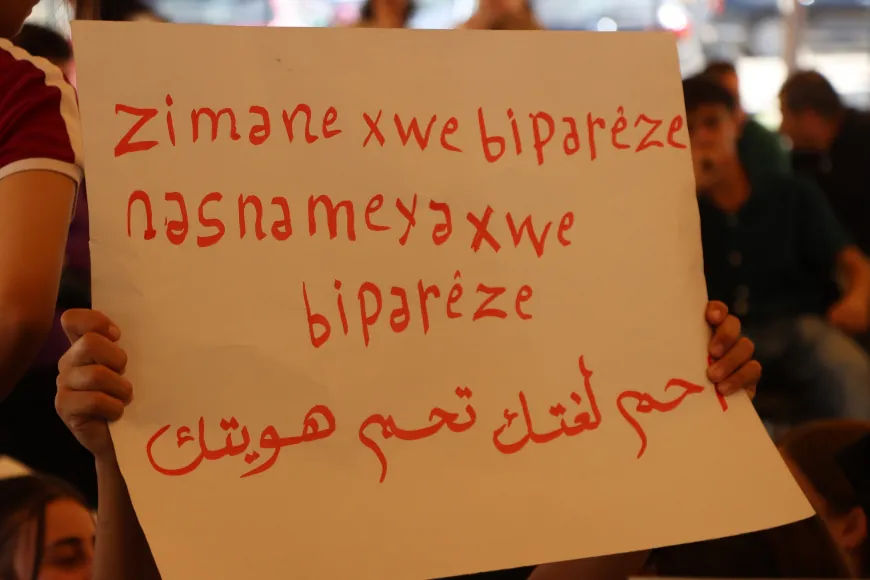 zimane xwe biparêze
nasnameya xwe
biparêze
احم لغتك تحم هويتك